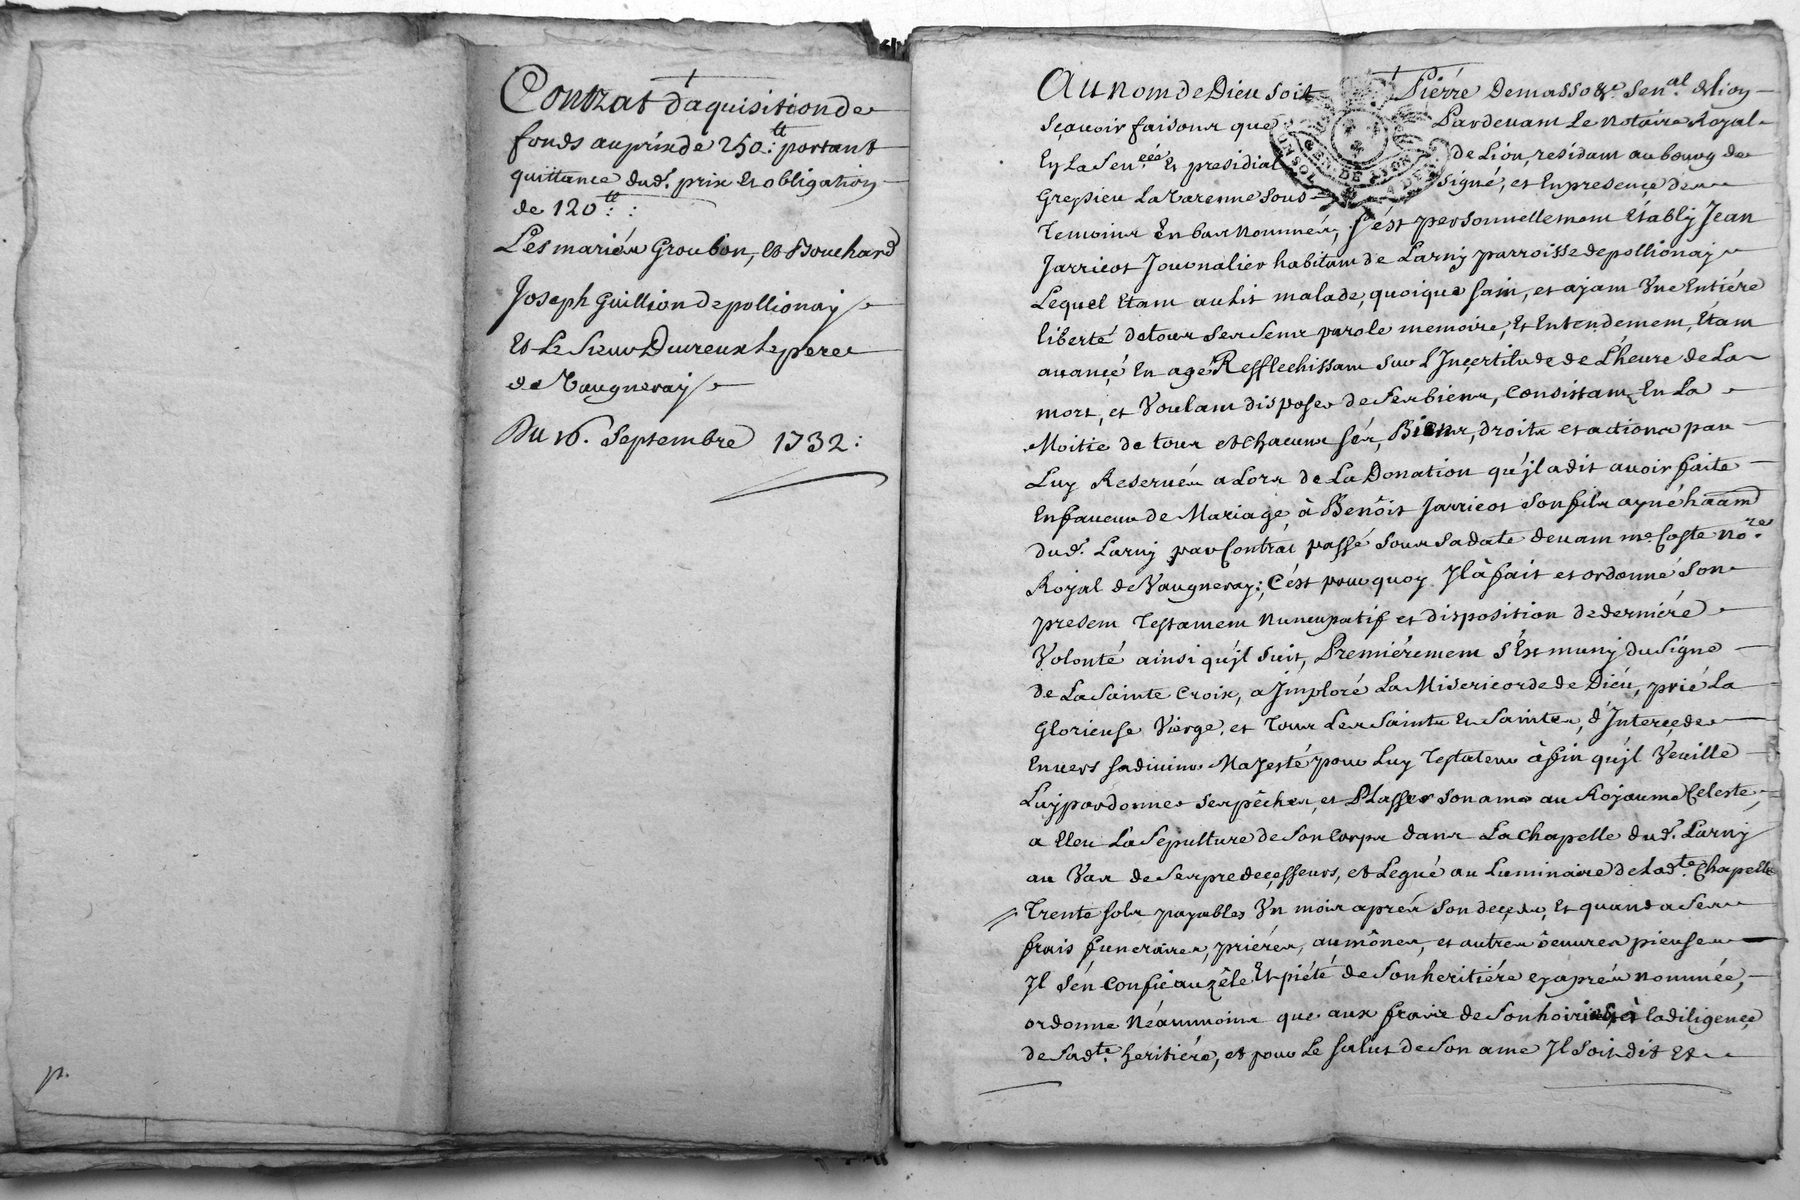 Contrat d'aquisition de
fonds au prix de 250.tt portant
quittance dud. prix et obligation
de 120 tt :
Les mariés Groubon, et Bouchard
Joseph Guillion de pollionay
Et Le Sieur Duvreux Le pere
de Vaugneray
Du 16. Septembre 1732 :
p.
Au nom de Dieu soit Pierre de masso &c. Sen.al de lion
Sçavoir faisons que Pardevant Le Notaire Royal
En La Sen.eée Et presidial de Lion, residant au bourg de
Grezieu La Varenne Sous signé, et En presence des
Temoins En bas Nommés, s'est personnellement Etably Jean
Jarricot Journalier habitant de Larny parroisse de pollionay
Lequel Etant au lit malade, quoique sain, et ayant Vne Entiére
liberté de tous ses sens parole memoire, Et Entendement, Etant
avançé En age Reffléchissant sur L'Inçertitude de L'heure de La
mort, et Voulant disposer de ses biens, Consistant En La
Moitie de tous et chacuns ses, Biens, droits et actions par
Luy Reservés alors de La Donation qu'jl a dit avoir faite
En faveur de Mariage à Benôit Jarricot Son fils ayné haânt
dud. Larny par Contrat passé sous sa date devant me. Coste no.re
Royal de Vaugneray; C'ést pourquoy Jl â fait et ordonné Son
present Testament Nuncupatif et disposition de derniére
Volonté ainsi qu'jl suit, Premiérement s'Est muny du Signe
de La Sainte Croix, a Jmploré La Misericorde de Diéu, prié La
Glorieuse Vierge, et Tous Les Saints Et Saintes, d'Interçeder
Envers sa divine Majesté pour Luy Testateur âfin qu'jl Veuille
Luy pardonner ses pêchés, et Plasser son ame au Royaume Celeste,
a Eleu La Sepulture de Son Corps dans La chapelle dud. Larny
au Vas de Ses predeçesseurs, et Legué au Luminaire de Lad.te Chapelle
Trente sols payables Vn mois aprés Son deçeds, Et quand a Ses
frais funeraires, priéres, aumônes, et autres ôeuvres pieuses
Jl s'én confie au zêle Et piété de Son heritiére cy aprés nommée,
ordonne Néanmoins que aux frais de Son hoirie, Et à la diligençe
de Sad.te heritiére, et pour Le salut de Son ame Jl Soit dit Et